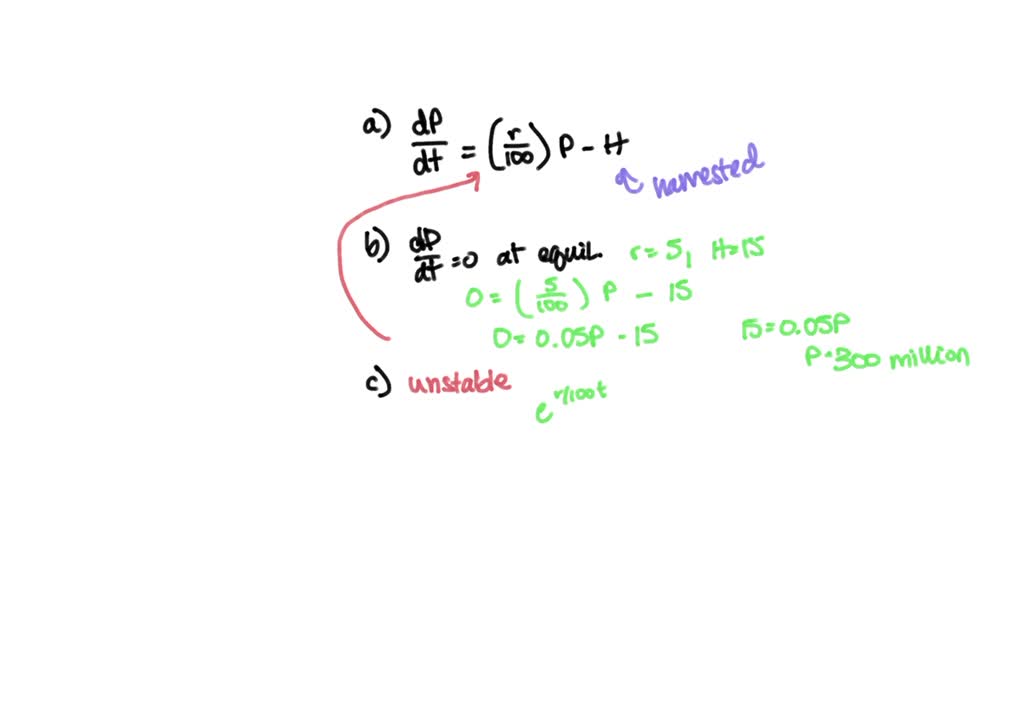 a) dP/dt = (r/100) P - H
harvested
b) dP/dt = 0 at equil. r = 5, H = 15
0 = (5/100) P - 15
0 = 0.05P - 15 15 = 0.05P
P = 300 million
c) unstable
e^{r/100t}